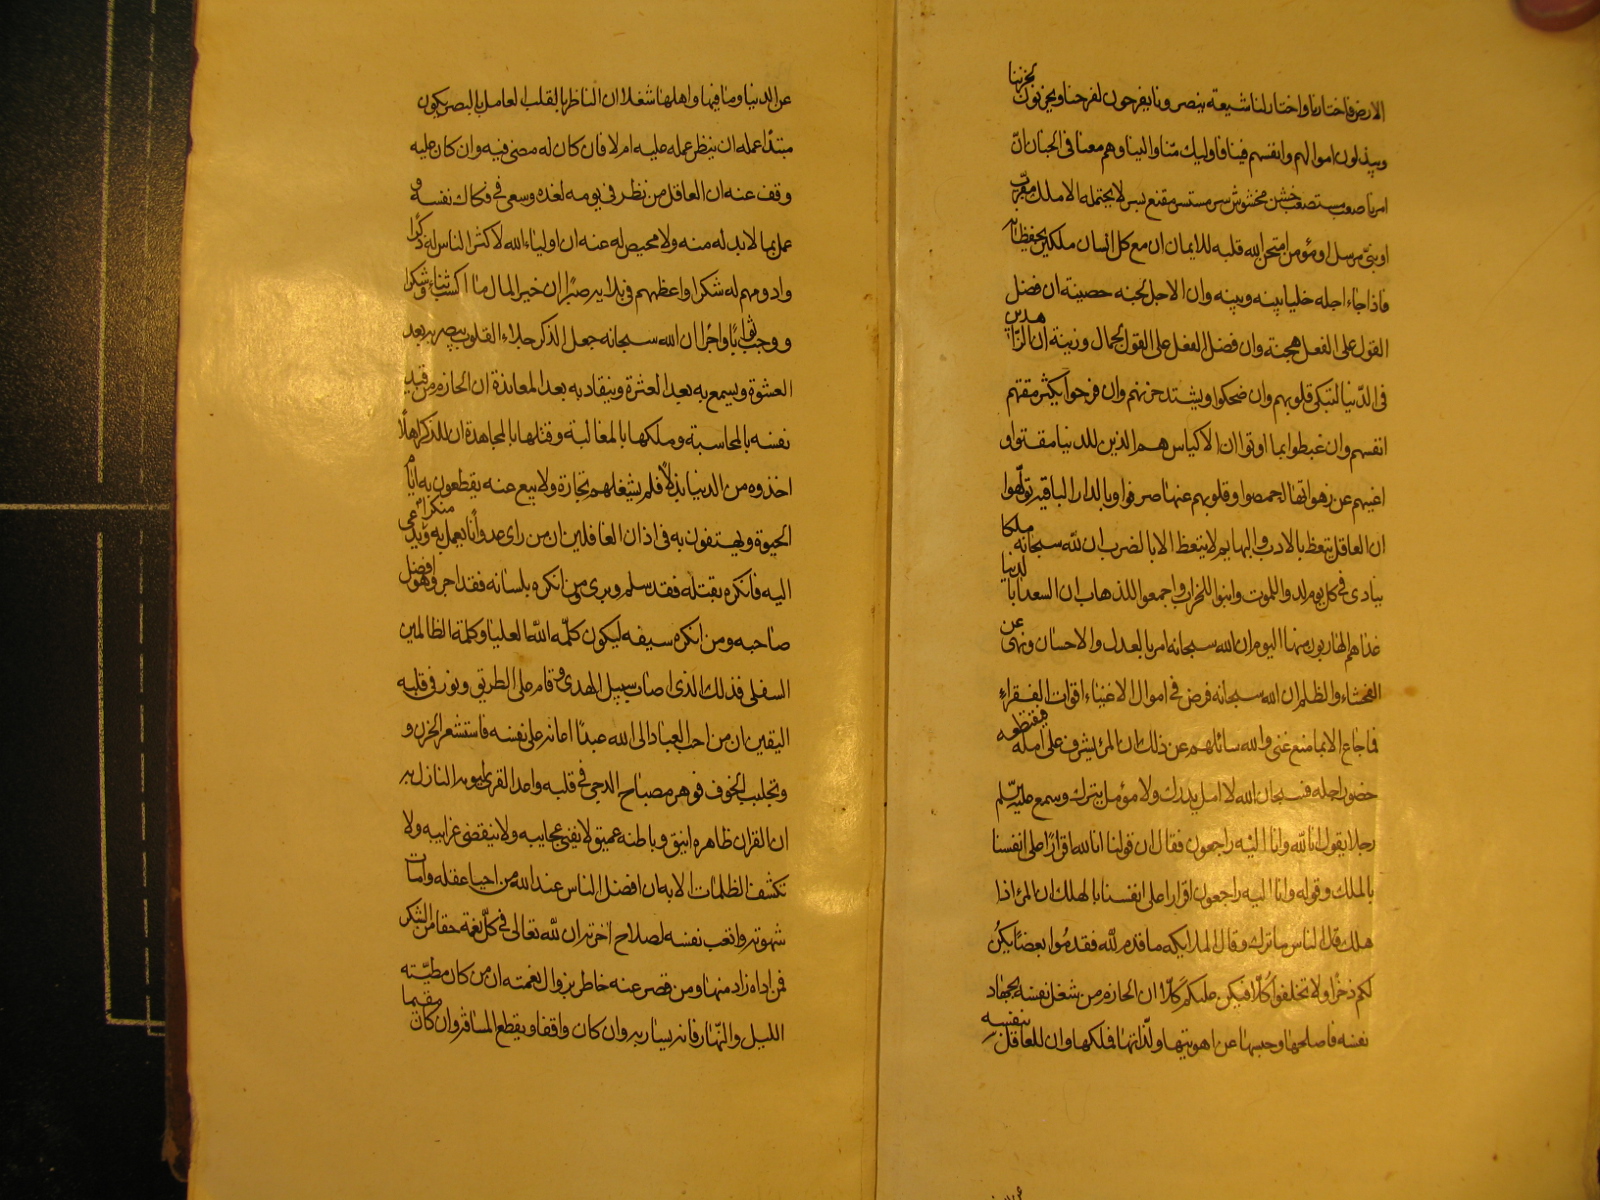 الارض فاختارنا واختار لنا شيعة ينصروننا يفرحون لفرحنا ويحزنون لحزننا
ويبذلون اموالهم وانفسهم فينا فاوليك منا والينا وهم معنا فى الجنان ان
امرنا صعب مستصعب خشن مخشوش سر مستسر مقنع بسر لا يحتمله الا ملك مقرب
او نبى مرسل او مؤمن امتحن الله قلبه للايمان ان مع كل انسان ملكين يحفظانه
فاذا جاء اجله خليا بينه وبينه وان الاجل لجنه حصينة ان فضل
القول على الفعل هجنة وان فضل الفعل على القول لجمال وزينة ان الزاهدين
فى الدنيا لتبكى قلوبهم وان ضحكوا ويشتد حزنهم وان فرحوا ويكثر مقتهم
انفسهم وان غبطوا بما اوتوا ان الاكياس هم الذين للدنيا مقتوا و
اعينهم عن زهرتها اغمضوا وقلوبهم عنها صرفوا وبالدار الباقية تولهوا
ان العاقل يتعظ بالادب والبهايم لا يتعظ الا بالضرب ان لله سبحانه ملكا
ينادى فى كل يوم لدوا للموت وابنوا للخراب واجمعوا للذهاب ان السعداء بالدنيا
غدا هم الهاربون منها اليوم ان الله سبحانه امر بالعدل والاحسان ونهى عن
الفحشاء والظلم ان الله سبحانه فرض فى اموال الاغنياء اقوات الفقراء
فما جاع الا بما منع غنى والله سائلهم عن ذلك ان المرء يشرف على امله فيقتطعه
حضور اجله فسبحان الله لا امل يدرك ولا مؤمل يترك وسمع عليه السلم
رجلا يقول انا لله وانا اليه راجعون فقال ان قولنا انا لله اقرارا على انفسنا
بالملك وقوله وانا اليه راجعون اقرارا على انفسنا بالهلك ان المرء اذا
هلك قال الناس ما ترك وقال الملائكه ما قدم لله فقدموا بعضا يكن
لكم ذخرا ولا تخلفوا كلا فيكن عليكم كلا ان الحازم من شغل نفسه بجهاد
نفسه فاصلحها وحبسها عن اهويتها ولذاتها فملكها وان للعاقل بنفسه
عن الدنيا وما فيها واهلها شغلا ان الناظر بالقلب العامل بالبصر يكون
مبتدا عمله ان ينظر عمله عليه ام لا فان كان له مضى فيه وان كان عليه
وقف عنه ان العاقل من نظر فى يومه لغده وسعى فى فكاك نفسه و
عمل بما لا بد له منه ولا محيص له عنه ان اولياء الله لاكثر الناس له ذكرا
وادومهم له شكرا واعظمهم فى بلائه صبرا ان خير المال ما اكسب ثناء وشكرا
ووجب ثوابا واجرا ان الله سبحانه جعل الذكر جلاء القلوب يبصر به بعد
العشوة ويسمع به بعد العثرة وينقاد به بعد المعاندة ان الحازم من قيد
نفسه بالمحاسبة وملكها بالمغالبة وقتلها بالمجاهدة ان للذكر اهلا
اخذوه من الدنيا بدلا فلم يشغلهم تجارة ولا بيع عنه يقطعون به ايام
الحيوة ويهتفون به فى اذان الغافلين ان من راى عدوانا يعمل به ومنكرا يدعى
اليه فانكره بقتله فقد سلم وبرى ومن انكره بلسانه فقد اجر وهو افضل
صاحبه ومن انكره بسيفه ليكون كلمه الله العليا وكلمة الظالمين
السفلى فذلك الذى اصاب سبيل الهدى وقام على الطريق ونور فى قلبه
اليقين ان من احب العباد الى الله عبدا اعانه على نفسه فاستشعر الحزن و
وتجلبب الخوف فزهر مصباح الدجى فى قلبه واعد القرى ليومه النازل به
ان القران ظاهره انيق وباطنه عميق لا تفنى عجايبه ولا ينقضى غرايبه ولا
تكشف الظلمات الا به ان افضل الناس عند الله من احيا عقله وامات
شهوته واتعب نفسه لصلاح اخرته ان لله تعالى فى كل نعمة حقا من الشكر
فمن اداه زاد منها ومن قصر عنه خاطر بزوال نعمته ان من كان مطيته
الليل والنهار فانه يسار به وان كان واقفا ويقطع المسافر وان كان مقيما